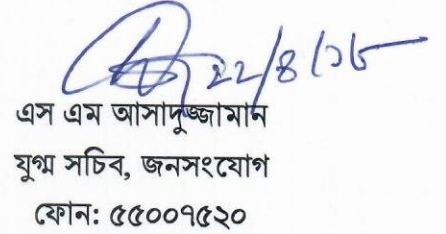 ২২/৪/২৫
এস এম আসাদুজ্জামান
যুগ্ম সচিব, জনসংযোগ
ফোন: ৫৫০০৭৫২০